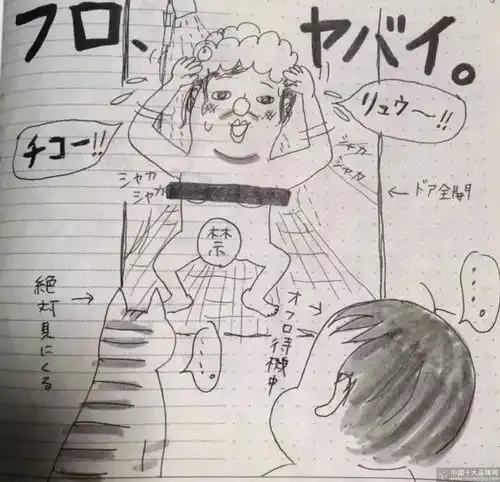 フロ、ヤバイ。
チコー!!
リュウ〜!!
シャカ
シャカ
シャカ
シャカ
← ドア全開
禁
絶対見にくる
→
オフロ待機中
→
・・・・。
・・・。
中国十大品牌网